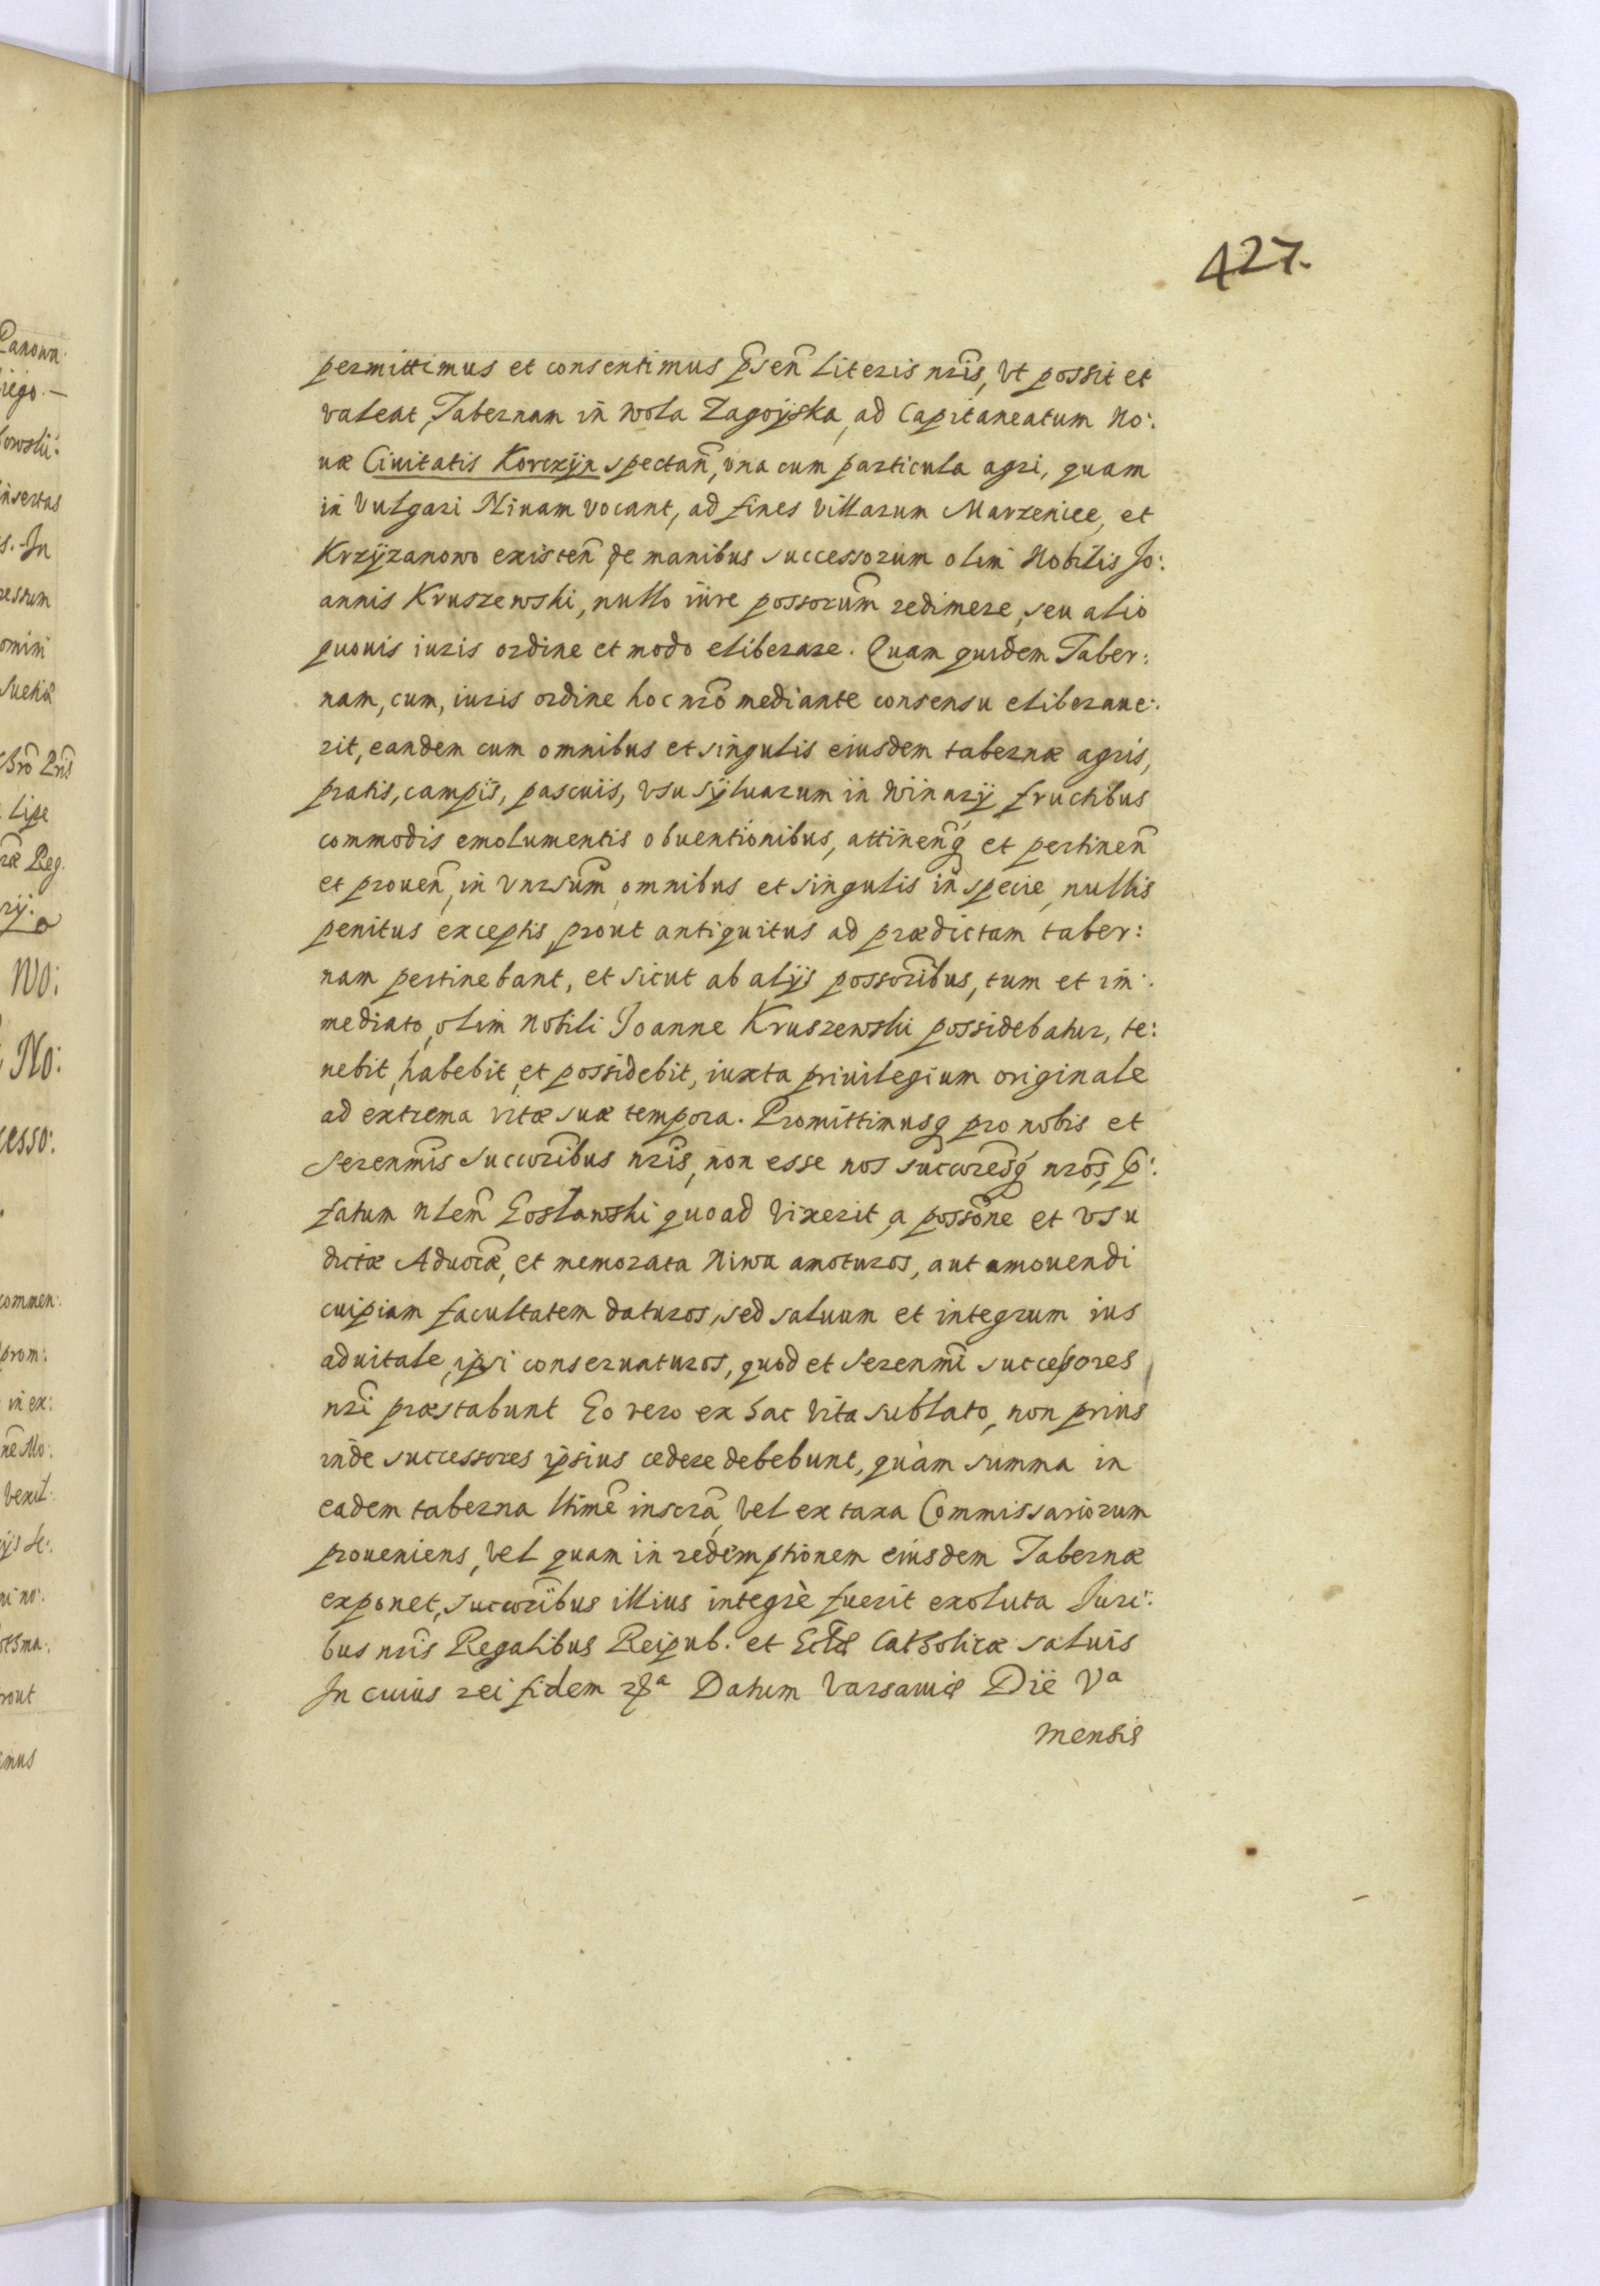 427.
permittimus et consentimus p̃sen̄ Literis nr̃is, Vt possit et
valeat, Tabernam in Wola Zagoÿska, ad Capitaneatum No:
uæ Ciuitatis Korczÿn spectan̄, vna cum particula agri, quam
in Vulgari Niuam vocant, ad fines villarum Marzenice, et
Krzÿzanowo existen̄ de manibus successorum olim Nobilis Jo:
annis Kruszewski, nullo iure possorum̃ redimere, seu alio
quouis iuris ordine et modo eliberare. Quam quidem Taber:
nam, cum, iuris ordine hoc nr̃o mediante consensu eliberaue:
rit, eandem cum omnibus et singulis eiusdem tabernæ agris,
pratis, campis, pascuis, vsu sÿluarum in Winarÿ fructibus
commodis emolumentis obuentionibus, attinen̄q́ et pertinen̄
et prouen̄, in vnrsum̃ omnibus et singulis in specie, nullis
penitus exceptis prout antiquitus ad prædictam taber:
nam pertinebant, et sicut ab alÿs possoribus̃, tum et im:
mediato, olim Nobili Joanne Kruszewski possidebatur, te:
nebit, habebit, et possidebit, iuxta priuilegium originale
ad extrema vitæ suæ tempora. Promittimusq́ pro nobis et
Serenm̃is succoribus̃ nr̃is, non esse nos succoresq́ nr̃os, p̃:
fatum Nlem̃ Gosławski quoad vixerit, a posson̄e et vsu
dictæ Aduocæ̃, et memorata Niwa amoturos, aut amouendi
cuipiam facultatem daturos, sed saluum et integrum ius
aduitale, ipsi conseruaturos, quod et Serenm̃i successores
nr̃i præstabunt Eo vero ex hac vita sublato, non prius
inde successores ipsius cedere debebunt, quàm summa in
eadem taberna ltime̅ inscra̅, vel ex taxa Commissariorum
proueniens, vel quam in redemptionem eiusdem Tabernæ
exponet, succoribus̃ illius integrè fuerit exoluta Juri:
bus nr̃is Regalibus Reipub. et Ecl̃æ Catholicæ saluis
In cuius rei fidem &ᵃ Datum Varsauiæ Die Vᵃ
mensis